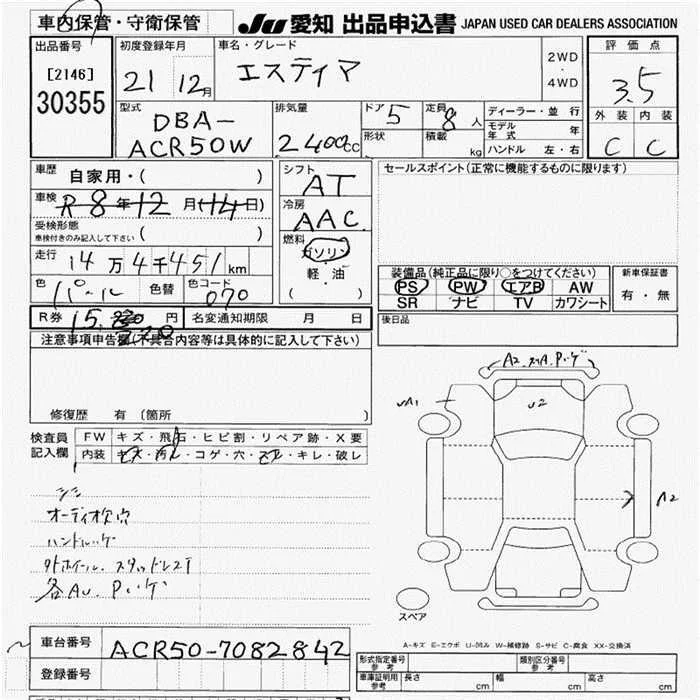 車内保管・守衛保管
JU 愛知 出品申込書 JAPAN USED CAR DEALERS ASSOCIATION
出品番号
[2146]
30355
初度登録年月
21 12月
車名・グレード
エスティマ
2WD
・
4WD
評価点
3.5
外装 内装
C C
型式
DBA-
ACR50W
排気量
2400cc
ドア 5
形状
定員 8人
積載 kg
ディーラー・並行
モデル年式 年
ハンドル 左・右
車歴
自家用・( )
車検 R8年12月(14日)
受検形態
車検付きのみ記入して下さい ( )
走行 14万4千451km
色 パール 色替 色コード 070
シフト
AT
冷房
AAC
燃料
ガソリン
軽・油
( )
セールスポイント(正常に機能するものに限ります)
装備品(純正品に限り○をつけてください)
PS PW エアB AW
SR ナビ TV カワシート
新車保証書
有・無
R券 円 名変通知期限 月 日
後日品
注意事項申告欄(不具合内容等は具体的に記入して下さい)
修復歴 有 (箇所 )
検査員
記入欄
FW キズ・飛石・ヒビ割・リペア跡・X要
内装 キズ・汚れ・コゲ・穴・ズレ・キレ・破レ
シミ
オーディオ欠品
ハンドルハゲ
外ホイール. スタッドレスT
各AU. Pハゲ
A2. Pハゲ
UA1
U2
A2
スペア
A-キズ E-エクボ U-凹み W-補修跡 S-サビ C-腐食 XX-交換済
車台番号 ACR50-7082842
登録番号
形式指定番号
参考
類別区分番号
参考
車庫証明用
参考
長さ cm 幅 cm 高さ cm